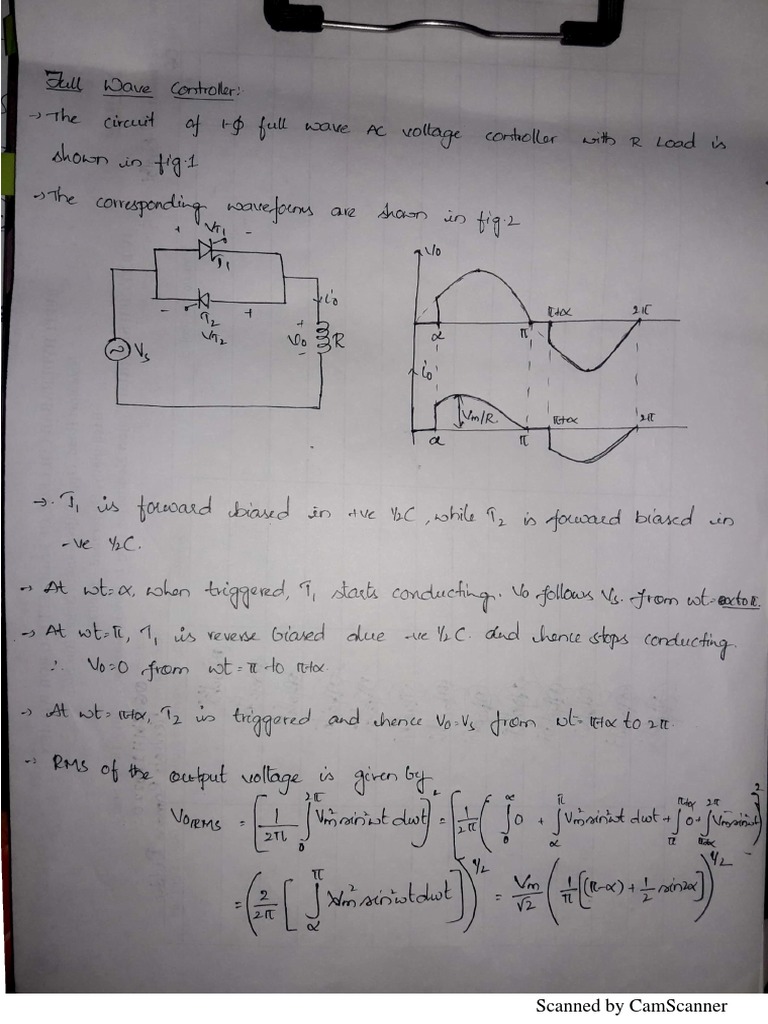 Full Wave Controller:
→ The circuit of 1-Φ full wave AC voltage controller with R Load is
shown in fig.1
→ The corresponding waveforms are shown in fig.2
+ VT1 -
T1
- T2 +
VT2
Vs
i0
+
V0
-
R
V0
α π π+α 2π
i0
Vm/R
α π π+α 2π
→ T1 is forward biased in +ve 1/2C, while T2 is forward biased in
-ve 1/2C.
→ At wt=α, when triggered, T1 starts conducting. Vo follows Vs. from wt=α to π.
→ At wt=π, T1 is reverse biased due -ve 1/2C. and hence stops conducting.
∴ Vo=0 from wt=π to π+α.
→ At wt=π+α, T2 is triggered and hence Vo=Vs from wt=π+α to 2π.
→ RMS of the output voltage is given by
VoRMS = [1/2π ∫₀^2π Vm² sin²wt dwt]^2 = [1/2π (∫₀^α 0 + ∫α^π Vm² sin²wt dwt + ∫π^π+α 0 + ∫π+α^2π Vm² sin²wt)]^2
= (2/2π [∫α^π Vm² sin²wt dwt])^1/2 = Vm/√2 (1/π [(π-α) + 1/2 sin2α])^1/2
Scanned by CamScanner